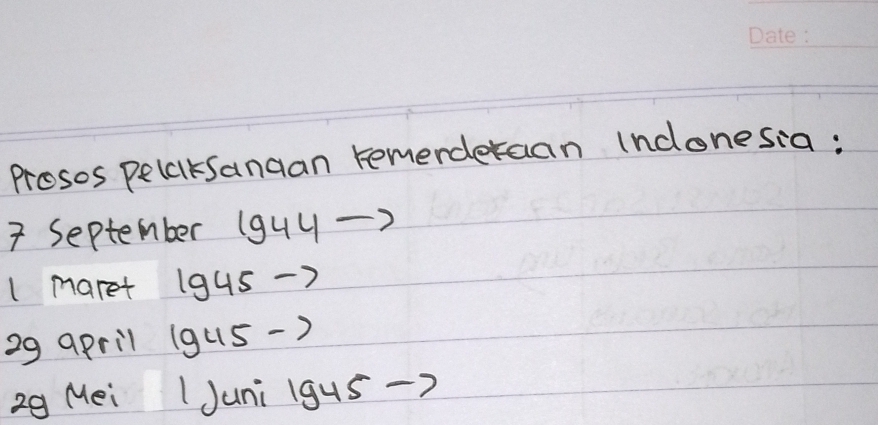 Date :
Prosos pelaksanaan kemerdekaan Indonesia :
7 September 1944 →
1 maret 1945 →
29 april 1945 →
29 Mei 1 Juni 1945 →